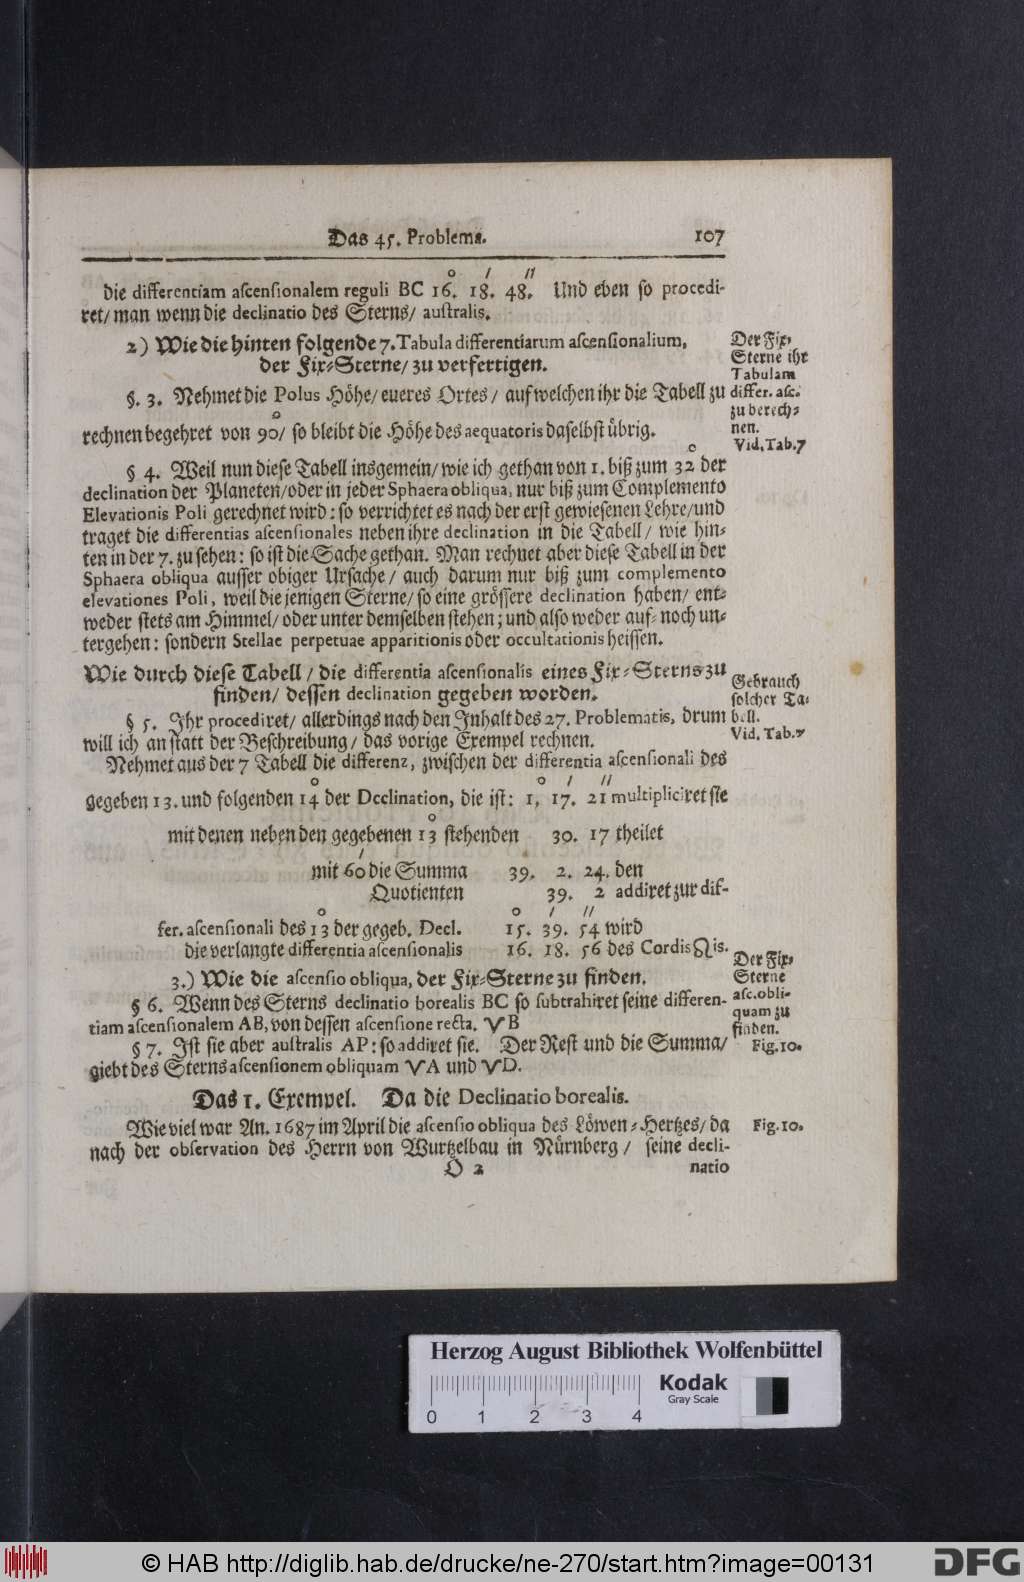 Das 45. Problema.
107
die differentiam ascensionalem reguli BC 16.° 18.′ 48.″ Und eben so procedi-
ret/ man wenn die declinatio des Sterns/ australis.
2) Wie die hinten folgende 7. Tabula differentiarum ascensionalium,
der Fix-Sterne/ zu verfertigen.
Der Fix-
Sterne ihr
Tabulam
differ. asc.
zu berech-
nen.
Vid. Tab. 7
§. 3. Nehmet die Polus Höhe/ eueres Ortes/ auf welchen ihr die Tabell zu
rechnen begehret von 90°/ so bleibt die Höhe des aequatoris daselbst übrig.
§ 4. Weil nun diese Tabell insgemein/ wie ich gethan von 1. biß zum 32° der
declination der Planeten/ oder in jeder Sphaera obliqua, nur biß zum Complemento
Elevationis Poli gerechnet wird: so verrichtet es nach der erst gewiesenen Lehre/ und
traget die differentias ascensionales neben ihre declination in die Tabell/ wie hin-
ten in der 7. zu sehen: so ist die Sache gethan. Man rechnet aber diese Tabell in der
Sphaera obliqua ausser obiger Ursache/ auch darum nur biß zum complemento
elevationes Poli, weil die jenigen Sterne/ so eine grössere declination haben/ ent-
weder stets am Himmel/ oder unter demselben stehen; und also weder auf- noch un-
tergehen: sondern Stellae perpetuae apparitionis oder occultationis heissen.
Wie durch diese Tabell/ die differentia ascensionalis eines Fix-Sterns zu
finden/ dessen declination gegeben worden.
Gebrauch
solcher Ta-
bell.
Vid. Tab. 7
§ 5. Ihr procediret/ allerdings nach den Inhalt des 27. Problematis, drum
will ich an statt der Beschreibung/ das vorige Exempel rechnen.
Nehmet aus der 7 Tabell die differenz, zwischen der differentia ascensionali des
gegeben 13. und folgenden 14° der Declination, die ist: 1,° 17.′ 21″ multipliciret sie
mit denen neben den gegebenen 13° stehenden 30. 17 theilet
mit 60′ die Summa 39. 2. 24. den
Quotienten 39. 2 addiret zur dif-
fer. ascensionali des 13° der gegeb. Decl. 15.° 39.′ 54″ wird
die verlangte differentia ascensionalis 16. 18. 56 des Cordis ♌is.
3.) Wie die ascensio obliqua, der Fix-Sterne zu finden.
Der Fix-
Sterne
asc. obli-
quam zu
finden.
§ 6. Wenn des Sterns declinatio borealis BC so subtrahiret seine differen-
tiam ascensionalem AB, von dessen ascensione recta, VB
§ 7. Ist sie aber australis AP: so addiret sie. Der Rest und die Summa/
Fig. 10.
giebt des Sterns ascensionem obliquam VA und VD.
Das 1. Exempel. Da die Declinatio borealis.
Wie viel war An. 1687 im April die ascensio obliqua des Löwen-Hertzes/ da
Fig. 10.
nach der observation des Herrn von Wurtzelbau in Nürnberg/ seine decli-
O 2
natio
Herzog August Bibliothek Wolfenbüttel
Kodak
Gray Scale
0 1 2 3 4
© HAB http://diglib.hab.de/drucke/ne-270/start.htm?image=00131
DFG